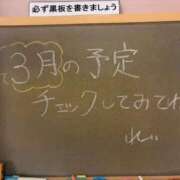 必ず黒板を書きましょう
3月の予定
チェックしてみてね